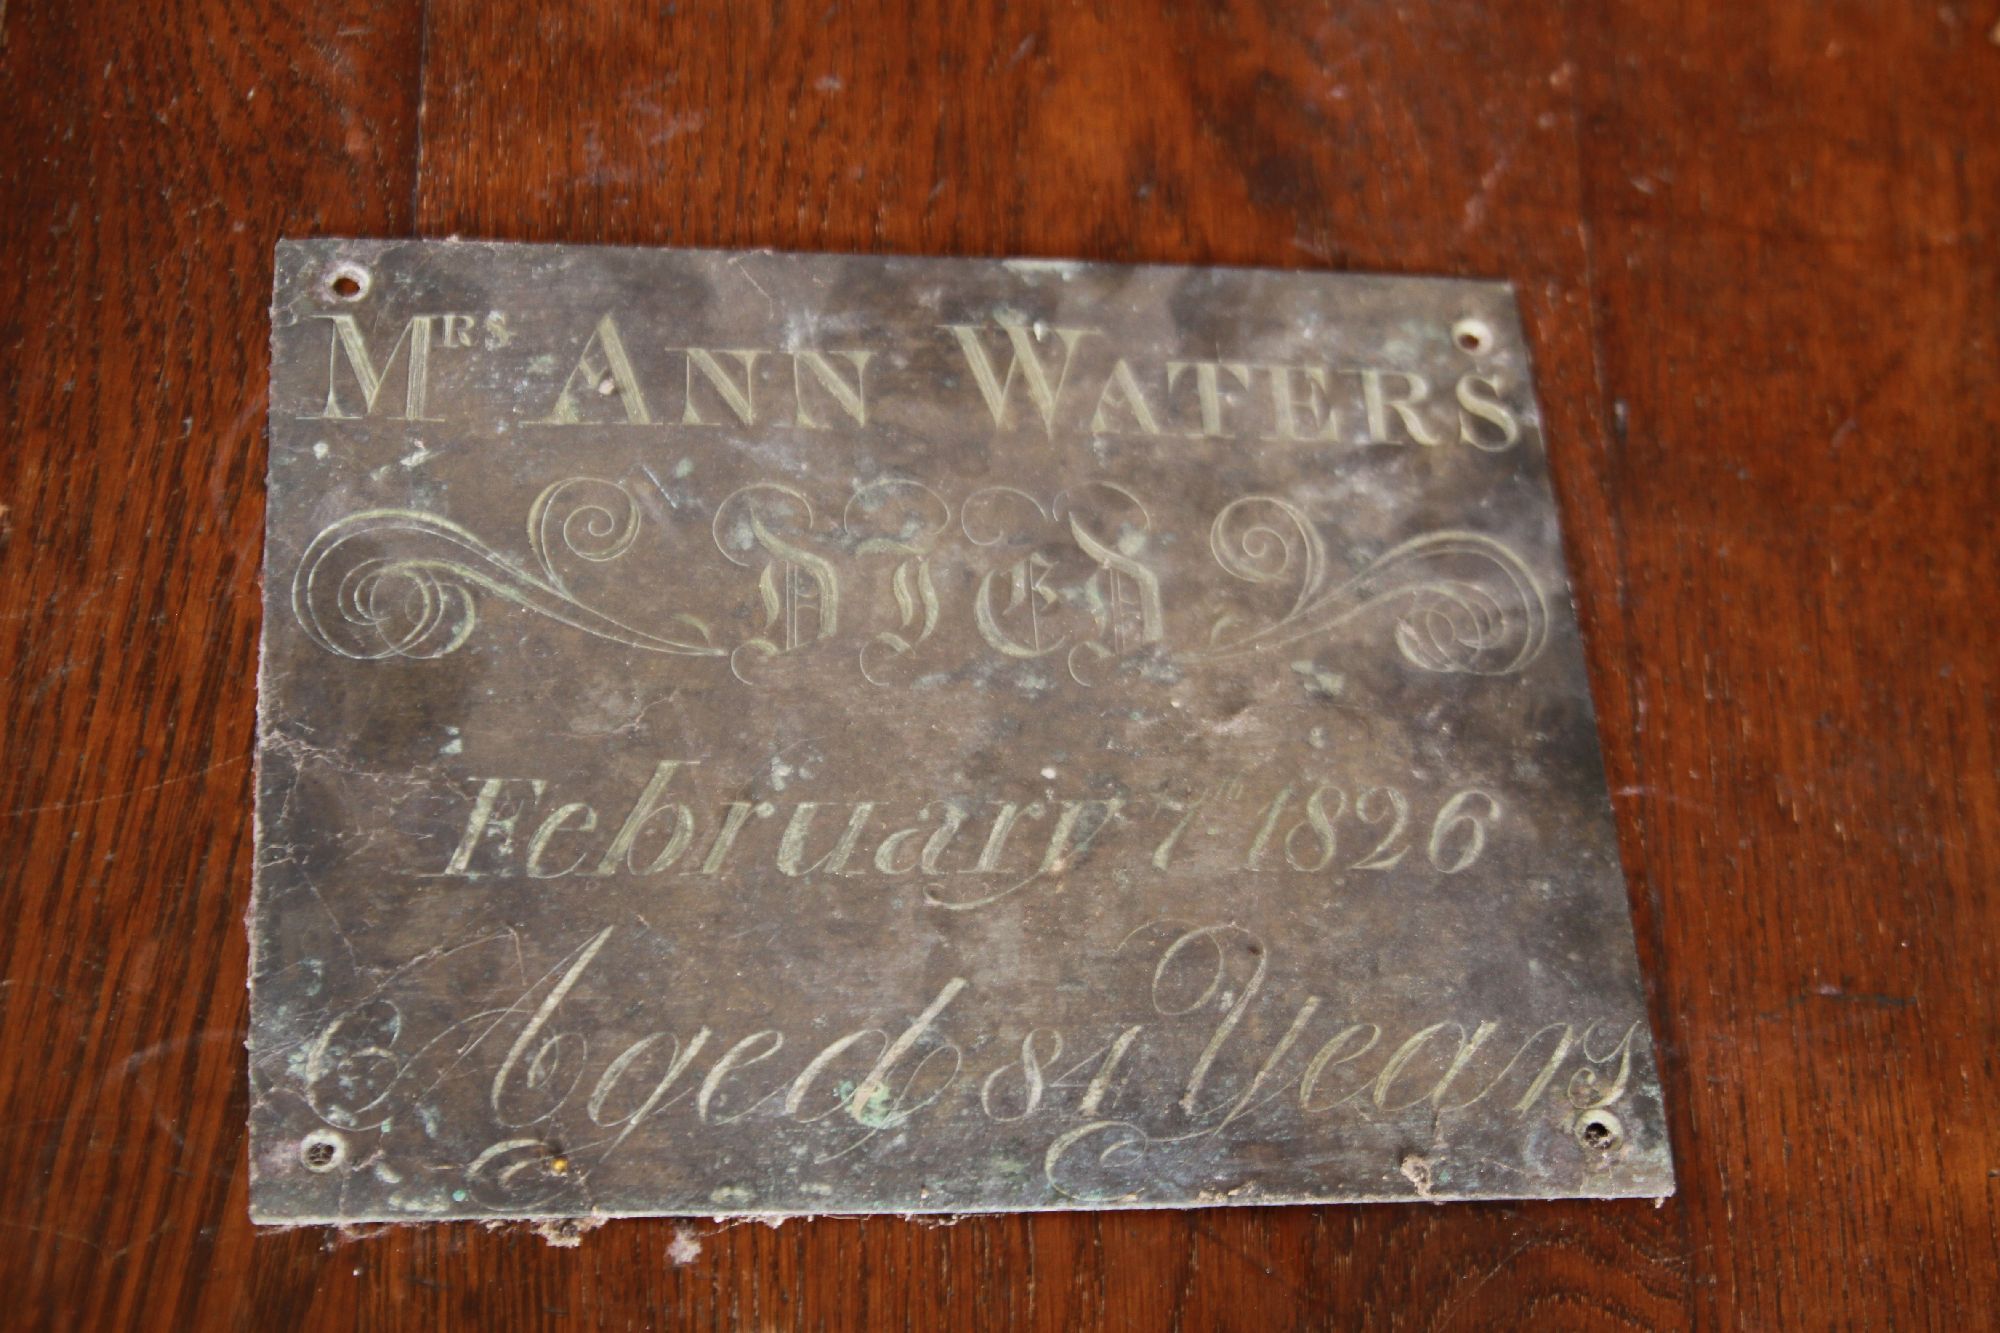 Mrs Ann Waters
Died
February 7th 1826
Aged 84 Years